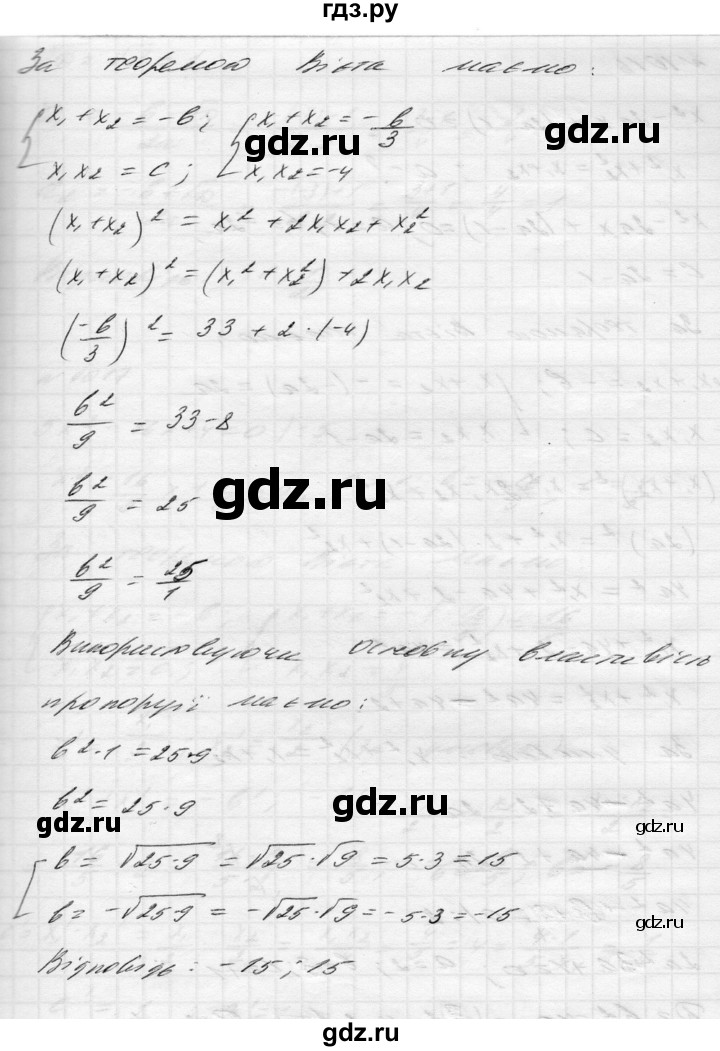 гдз.ру
За теоремою Вієта маємо:
{ x₁+x₂ = -b; { x₁+x₂ = -b/3
x₁x₂ = c; x₁x₂ = -4
gdz.ru
gdz.ru
(x₁+x₂)² = x₁² + 2x₁x₂ + x₂²
(x₁+x₂)² = (x₁²+x₂²) + 2x₁x₂
(-b/3)² = 33 + 2·(-4)
b²/9 = 33-8
b²/9 = 25
gdz.ru
b²/9 = 25/1
Використовуючи основну властивість
пропорції маємо:
b²·1 = 25·9
b² = 25·9
gdz.ru
gdz.ru
gdz.ru
[ b = √25·9 = √25·√9 = 5·3 = 15
b = -√25·9 = -√25·√9 = -5·3 = -15
gdz.ru
Відповідь: -15; 15
gdz.ru
gdz.ru